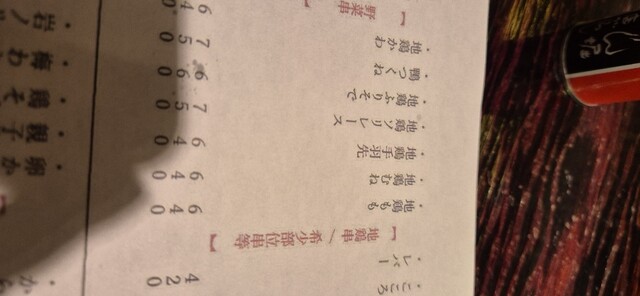 ・こころ 420
・レバー
【 地鶏串/希少部位串等 】
・地鶏もも 640
・地鶏むね 640
・地鶏手羽先 640
・地鶏ソリレース 750
・地鶏ふりそで 660
・鴨つくね 750
・地鶏かわ 640
【 野菜串
・か
・卵か
・親子
・鶏そ
・梅わ
・岩ノ